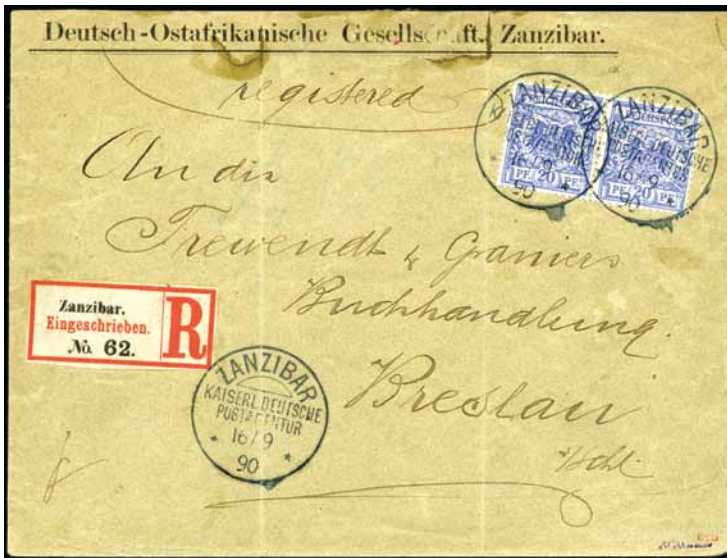 Deutsch-Ostafrikanische Gesellschaft, Zanzibar.
registered
ZANZIBAR
KAISERL. DEUTSCHE
POSTAGENTUR
16/9
90
REICHSPOST
PF. 20 PF.
ZANZIBAR
KAISERL. DEUTSCHE
POSTAGENTUR
16/9
90
REICHSPOST
PF. 20 PF.
An die
Trewendt & Graniers
Buchhandlung.
Breslau
Zanzibar.
Eingeschrieben.
No. 62.
R
ZANZIBAR
KAISERL. DEUTSCHE
POSTAGENTUR
16/9
90